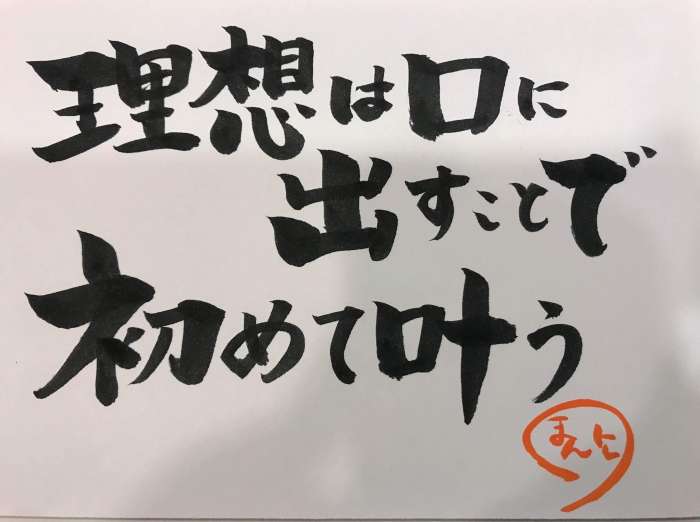 理想は口に
出すことで
初めて叶う